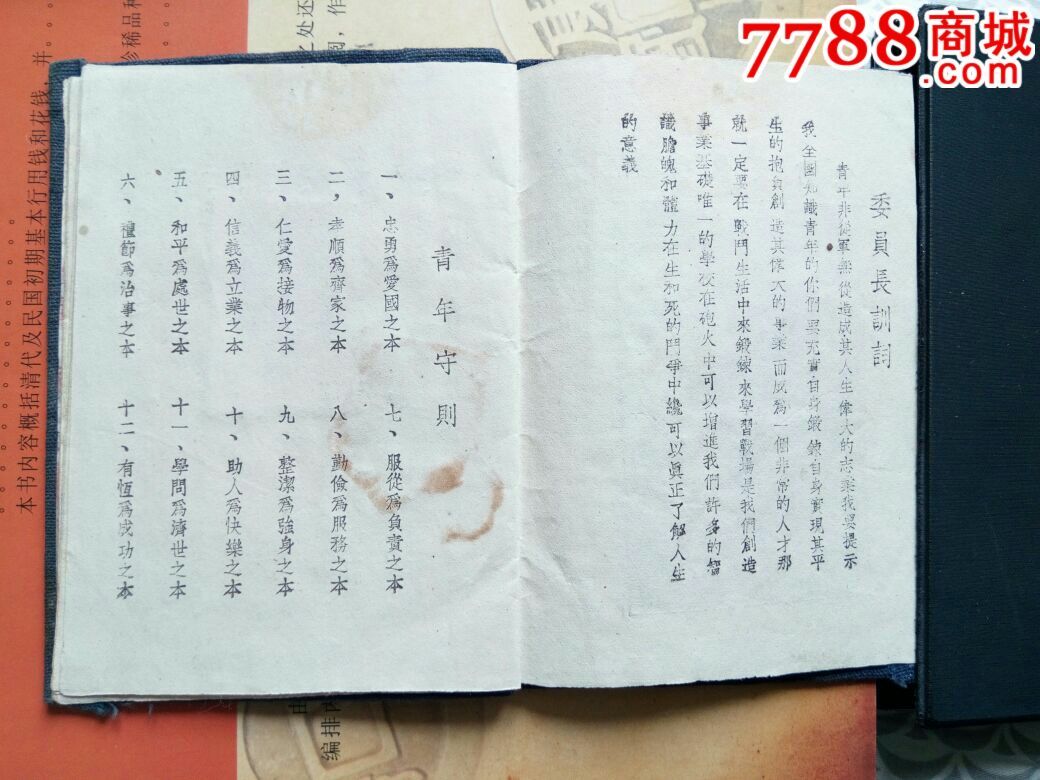 7788商城
.com
委員長訓詞
青年非從軍無從造成其人生偉大的志業我要提示
我全國知識青年的你們要充實自身鍛鍊自身實現其平
生的抱負創造其偉大的事業而成為一個非常的人才那
就一定要在戰鬥生活中來鍛鍊來學習戰場是我們創造
事業基礎唯一的學校在砲火中可以增進我們許多的智
識膽魄和體力在生和死的鬥爭中纔可以真正了解人生
的意義
青年守則
一、忠勇為愛國之本
二、孝順為齊家之本
三、仁愛為接物之本
四、信義為立業之本
五、和平為處世之本
六、禮節為治事之本
七、服從為負責之本
八、勤儉為服務之本
九、整潔為強身之本
十、助人為快樂之本
十一、學問為濟世之本
十二、有恆為成功之本
珍稀品和
本书内容概括清代及民国初期基本行用钱和花钱，并
之处还
阅，作
编排内